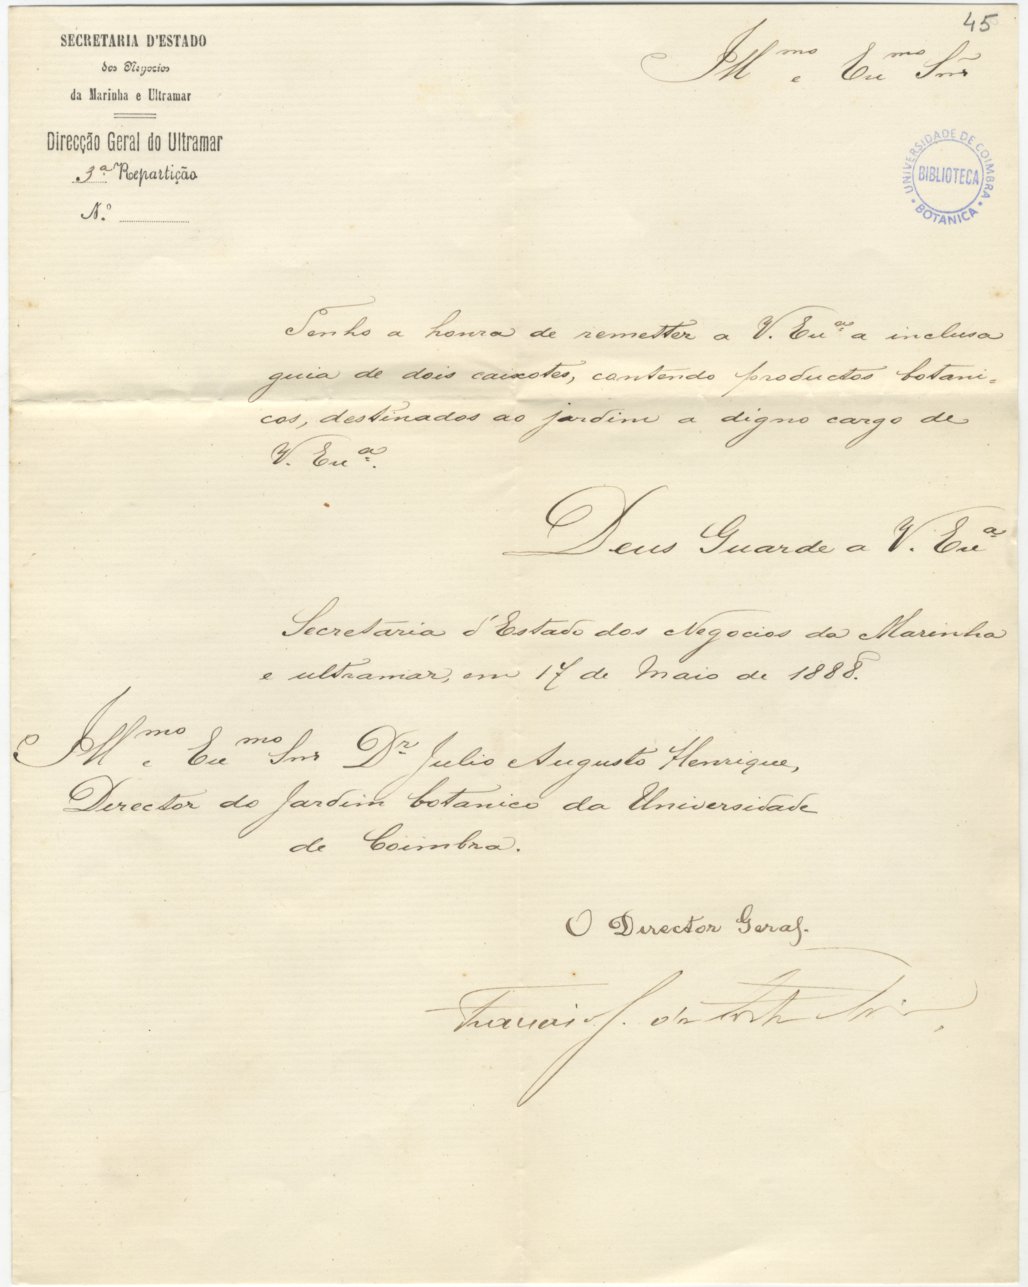 45
SECRETARIA D'ESTADO
dos Negocios
da Marinha e Ultramar
Direcção Geral do Ultramar
3ª Repartição
N.º
Illmo e Exmo Snr
UNIVERSIDADE DE COIMBRA
BIBLIOTECA
BOTANICA
Tenho a honra de remetter a V. Exª a inclusa
guia de dois caixotes, contendo productos botani-
cos, destinados ao jardim a digno cargo de
V. Exª.
Deus Guarde a V. Exª
Secretaria d'Estado dos Negocios da Marinha
e ultramar, em 17 de Maio de 1888.
Illmo e Exmo Snr Dr Julio Augusto Henrique,
Director do Jardim botanico da Universidade
de Coimbra.
O Director Geral.
Francisco J. da Costa e Silva